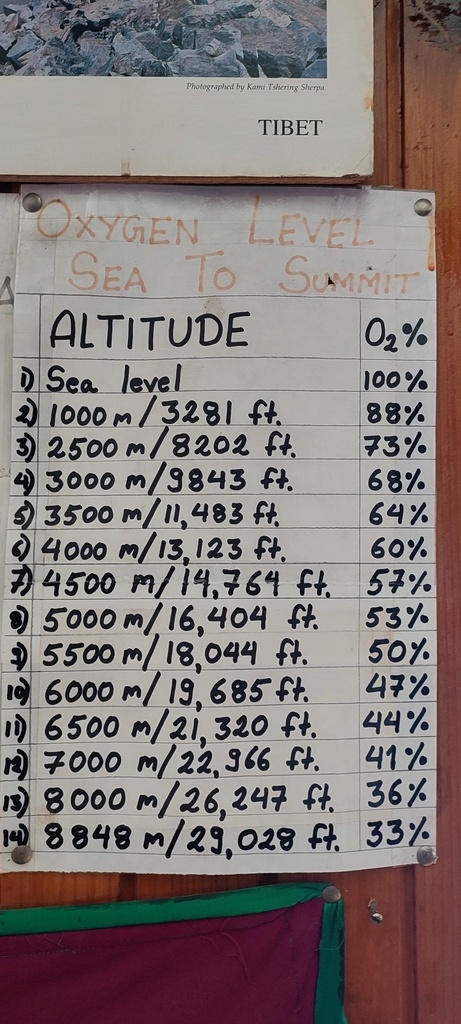 Photographed by Kami Tshering Sherpa
TIBET
OXYGEN LEVEL
SEA TO SUMMIT
ALTITUDE O₂%
1) Sea level 100%
2) 1000 m/3281 ft. 88%
3) 2500 m/8202 ft. 73%
4) 3000 m/9843 ft. 68%
5) 3500 m/11,483 ft. 64%
6) 4000 m/13,123 ft. 60%
7) 4500 m/14,764 ft. 57%
8) 5000 m/16,404 ft. 53%
9) 5500 m/18,044 ft. 50%
10) 6000 m/19,685 ft. 47%
11) 6500 m/21,320 ft. 44%
12) 7000 m/22,966 ft. 41%
13) 8000 m/26,247 ft. 36%
14) 8848 m/29,028 ft. 33%